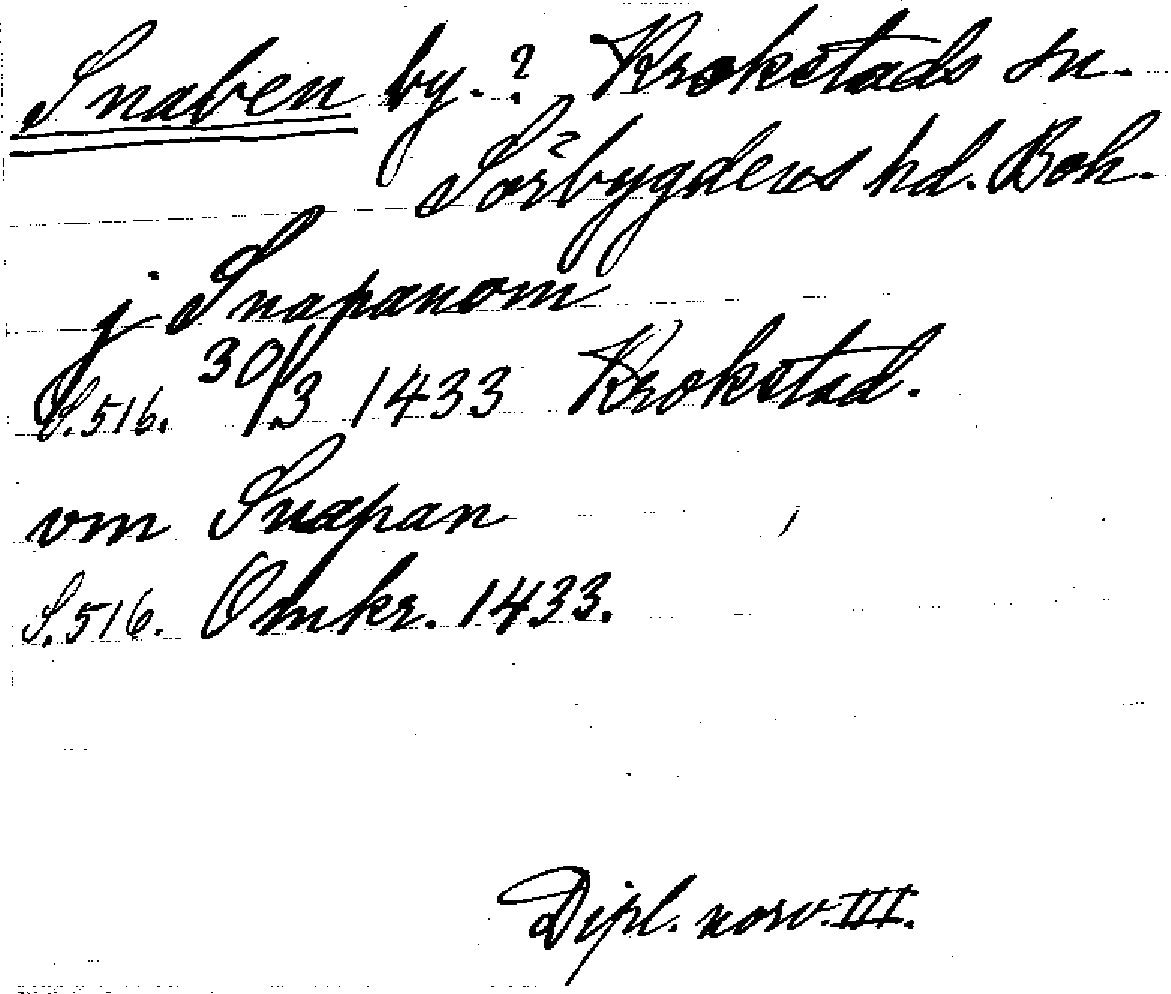 Snaben by.? Krokstads sn.
Sörbygdens hd. Boh.
j Snapanom
S.516. 30/3 1433 Krokstad.
vm Snæpan
S.516. Omkr. 1433.
Dipl. norv. III.